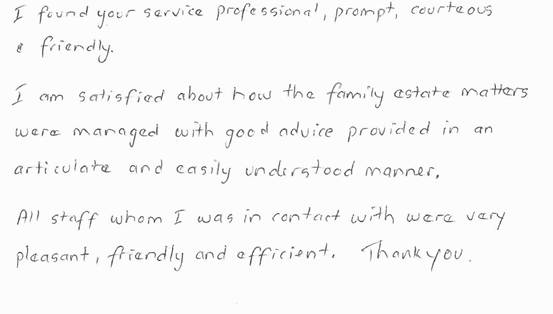 I found your service professional, prompt, courteous
& friendly.
I am satisfied about how the family estate matters
were managed with good advice provided in an
articulate and easily understood manner.
All staff whom I was in contact with were very
pleasant, friendly and efficient. Thankyou.